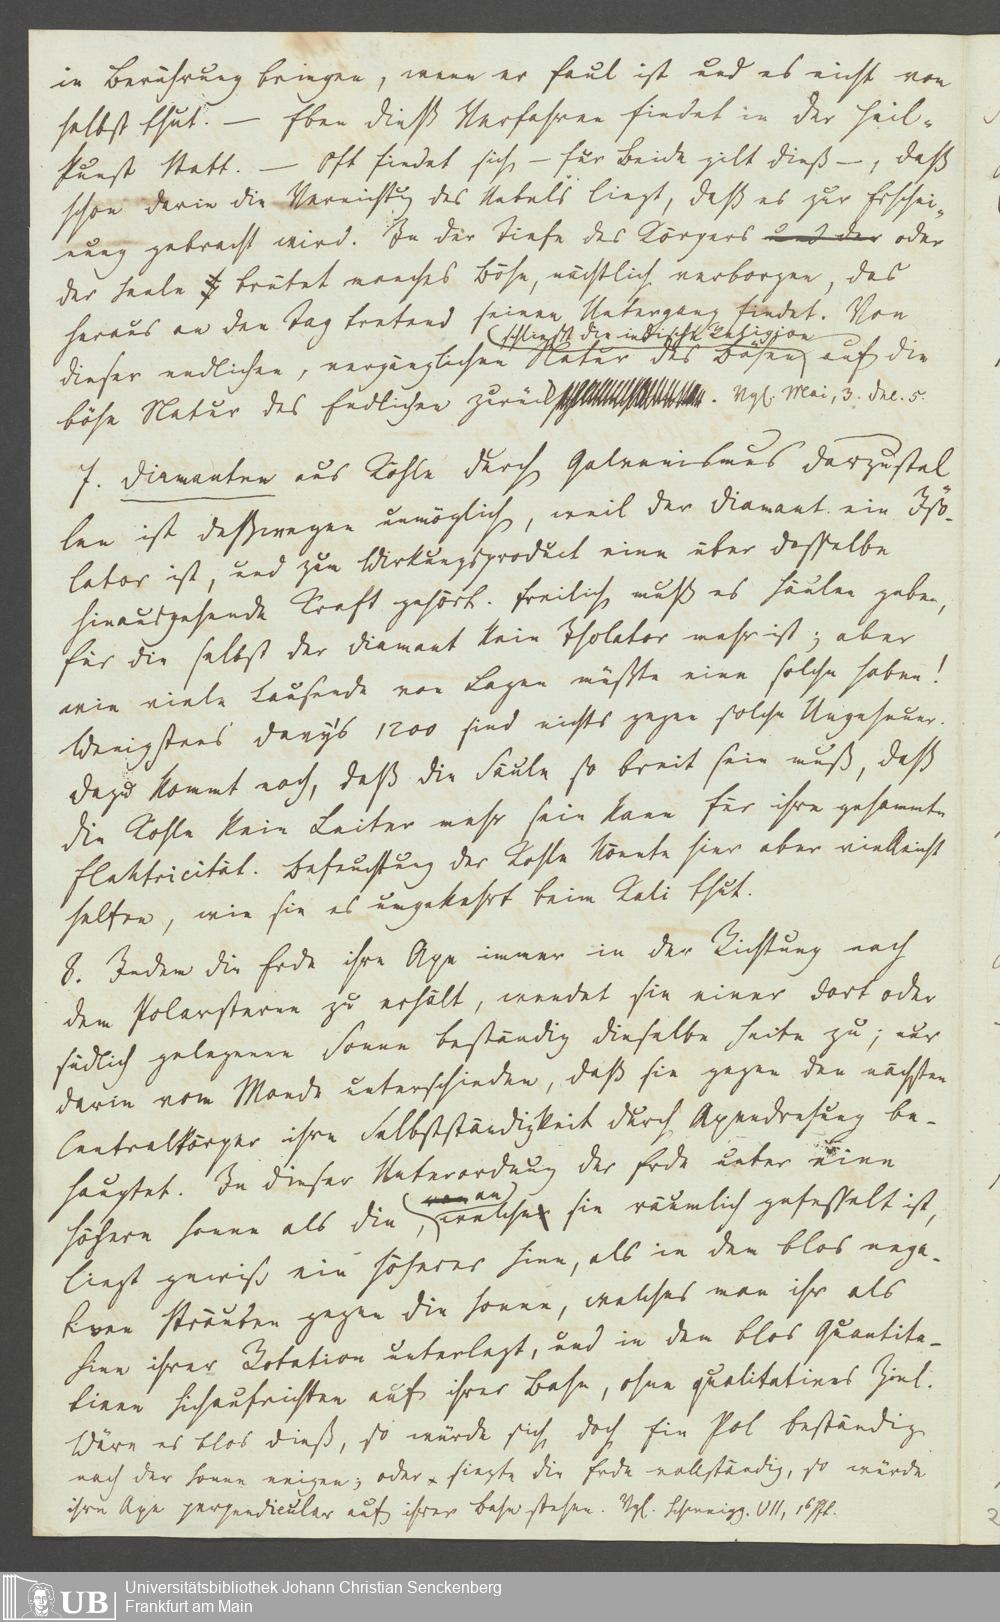 in Berührung bringen, wenn er faul ist und es nicht von
selbst thut. — Eben dieß Verfahren findet in der Heil-
kunst Statt. — Oft findet sich, — für Beide gilt dieß —, daß
schon darin die Vernichtg des Uebels liegt, daß es zur Erschei-
nung gebracht wird. In der Tiefe des Körpers und der oder
der Seele brütet manches Böse, nächtlich verborgen, das
heraus an den Tag tretend seinen Untergang findet. Von
schließt die indische Religion
dieser endlichen, vergänglichen Natur des Bösen auf die
böse Natur des Endlichen zurück. Vgl. Mai, 3. Del. 5.
7. Diamanten aus Kohle durch Galvanismus darzustel
len ist deßwegen unmöglich, weil der Diamant ein Iso-
lator ist, und zum Wirkungsproduct eine über dasselbe
hinausgehende Kraft gehört. Freilich muß es Säulen geben,
für die selbst der Diamant kein Isolator mehr ist; aber
wie viele Tausende von Lagen müßte eine solche haben!
Wenigstens Davy's 1200 sind nichts gegen solche Ungeheuer.
Dazu kommt noch, daß die Säule so breit sein muß, daß
die Kohle kein Leiter mehr sein kann für ihre gesammte
Elektricität. Befeuchtung der Kohle könnte hier aber vielleicht
helfen, wie sie es umgekehrt beim Kali thut.
8. Indem die Erde ihre Axe immer in der Richtung nach
dem Polarsterne zu erhält, wendet sie einer dort oder
südlich gelegenen Sonne beständig dieselbe Seite zu; nur
darin vom Monde unterschieden, daß sie gegen den nächsten
Centralkörper ihre Selbstständigkeit durch Axendrehung be-
hauptet. In dieser Unterordnung der Erde unter eine
von an
höhere Sonne als die, welche sie räumlich gefesselt ist,
liegt gewiß ein höherer Sinn, als in dem blos nega-
tiven Sträuben gegen die Sonne, welches man ihr als
Sinn ihrer Rotation unterlegt, und in dem blos Quantita-
tiven Sichaufrichten auf ihrer Bahn, ohne qualitatives Ziel.
Wäre es blos dieß, so würde sich doch Ein Pol beständig
nach der Sonne neigen; oder siegte die Erde vollständig, so würde
ihre Axe perpendicular auf ihrer Bahn stehen. Vgl. Schweigg. VII,
Universitätsbibliothek Johann Christian Senckenberg
Frankfurt am Main
UB